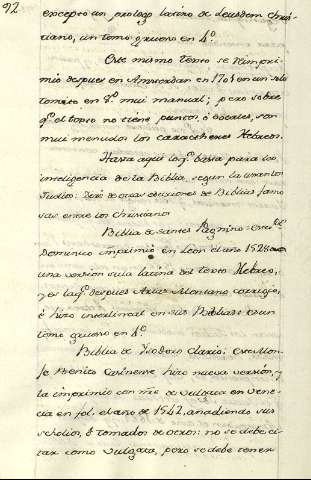 92
excepto un prologo latino de Leusdem Chris-
tiano, un tomo grueso en 4º
Este mismo texto se reimpri-
mio despues en Amsterdan en 1701 en un solo
tomito en 8º mui manual; pero sobre
qº el testo no tiene puntos, ó vocales, son
mui menudos los caracteres Hebreos.
Hasta aqui lo qº basta para la
inteligencia de la Biblia, segun la usan los
Judios: de otras ediciones de Biblias famo
sas entre los Christianos
Biblia de Santes Pagnino: este
Dominico imprimió en Leon el ano 1528
una version suia latina del texto Hebreo,
y es la qº despues Arias Montano corrigió,
é hizo interlineal en sus Biblias es un
tomo grueso en 4º
Biblia de Isodoro Clario: este Mon-
je Benito Casinense hizo nueva version, y
la imprimio con nre de vulgata en Vene
cia en fol. el ano de 1542, añadiendo sus
scholios, ó tomados de otros: no se debe ci-
tar como vulgata, pero se debe tener